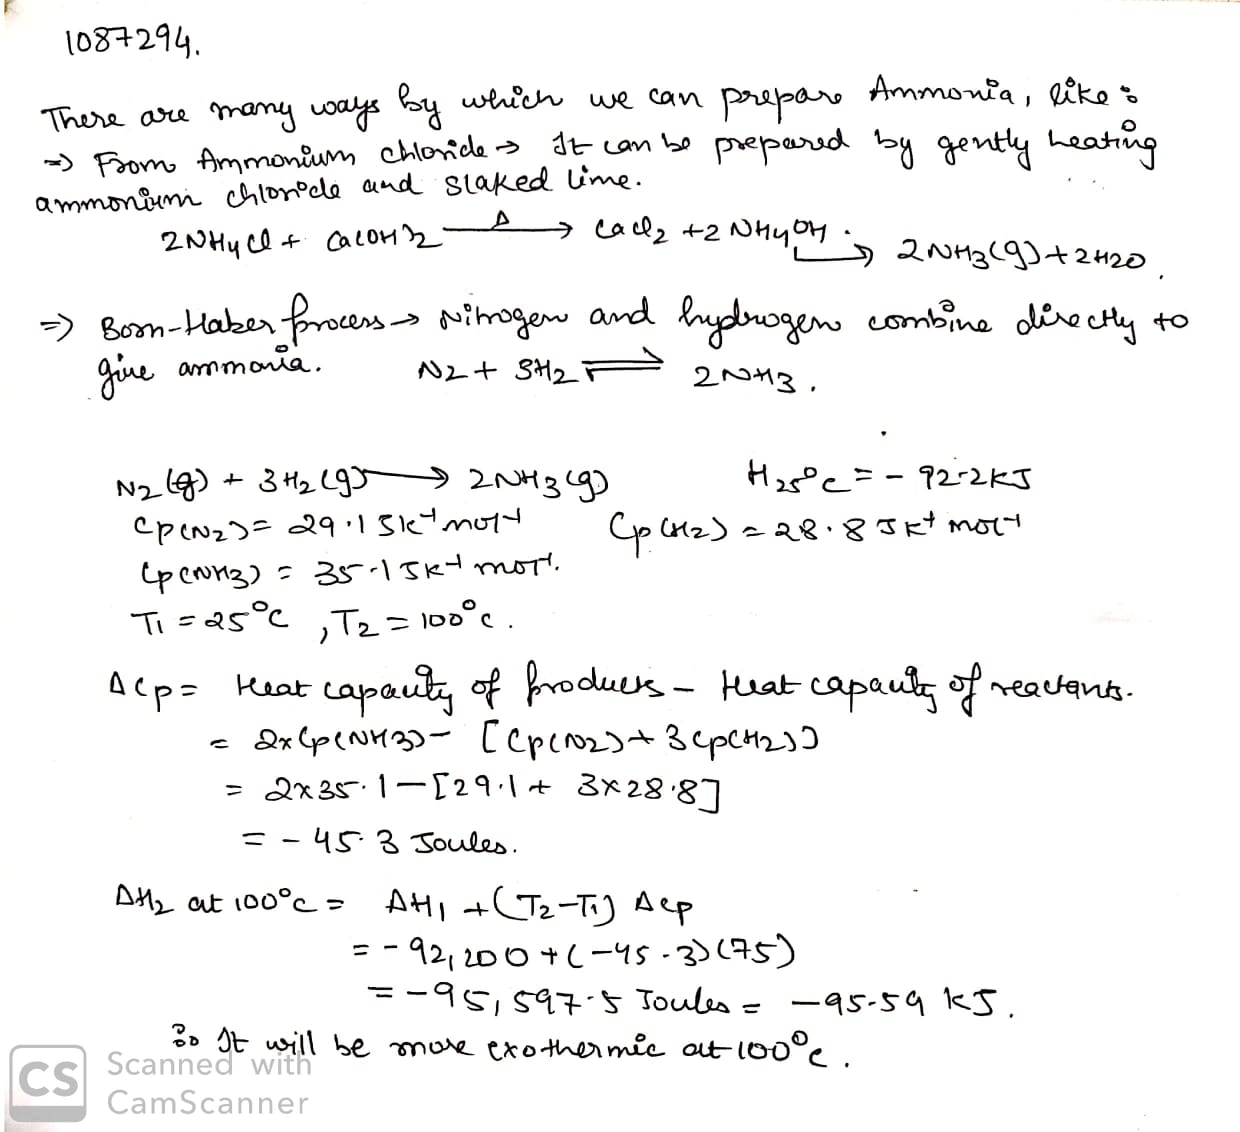 1087294.
There are many ways by which we can prepare Ammonia, like :
⇒ From Ammonium chloride → It can be prepared by gently heating
ammonium chloride and slaked lime.
2NH4Cl + Ca(OH)2 —Δ→ CaCl2 + 2NH4OH . ↳ 2NH3(g) + 2H2O .
⇒ Born-Haber process → Nitrogen and hydrogen combine directly to
give ammonia. N2 + 3H2 ⇌ 2NH3 .
N2(g) + 3H2(g) → 2NH3(g) H25°C = - 92.2KJ
Cp(N2) = 29.1 JK-1 mol-1 Cp(H2) = 28.8 JK-1 mol-1
Cp(NH3) = 35.1 JK-1 mol-1.
T1 = 25°C , T2 = 100°C .
ΔCp = Heat capacity of products - Heat capacity of reactants.
= 2x Cp(NH3) - [Cp(N2) + 3Cp(H2)]
= 2x35.1 - [29.1 + 3x28.8]
= - 45.3 Joules.
ΔH2 at 100°C = ΔH1 + (T2-T1) ΔCp
= - 92,200 + (-45.3)(75)
= -95,597.5 Joules = -95.59 kJ .
So It will be more exothermic at 100°C .
CS Scanned with
CamScanner